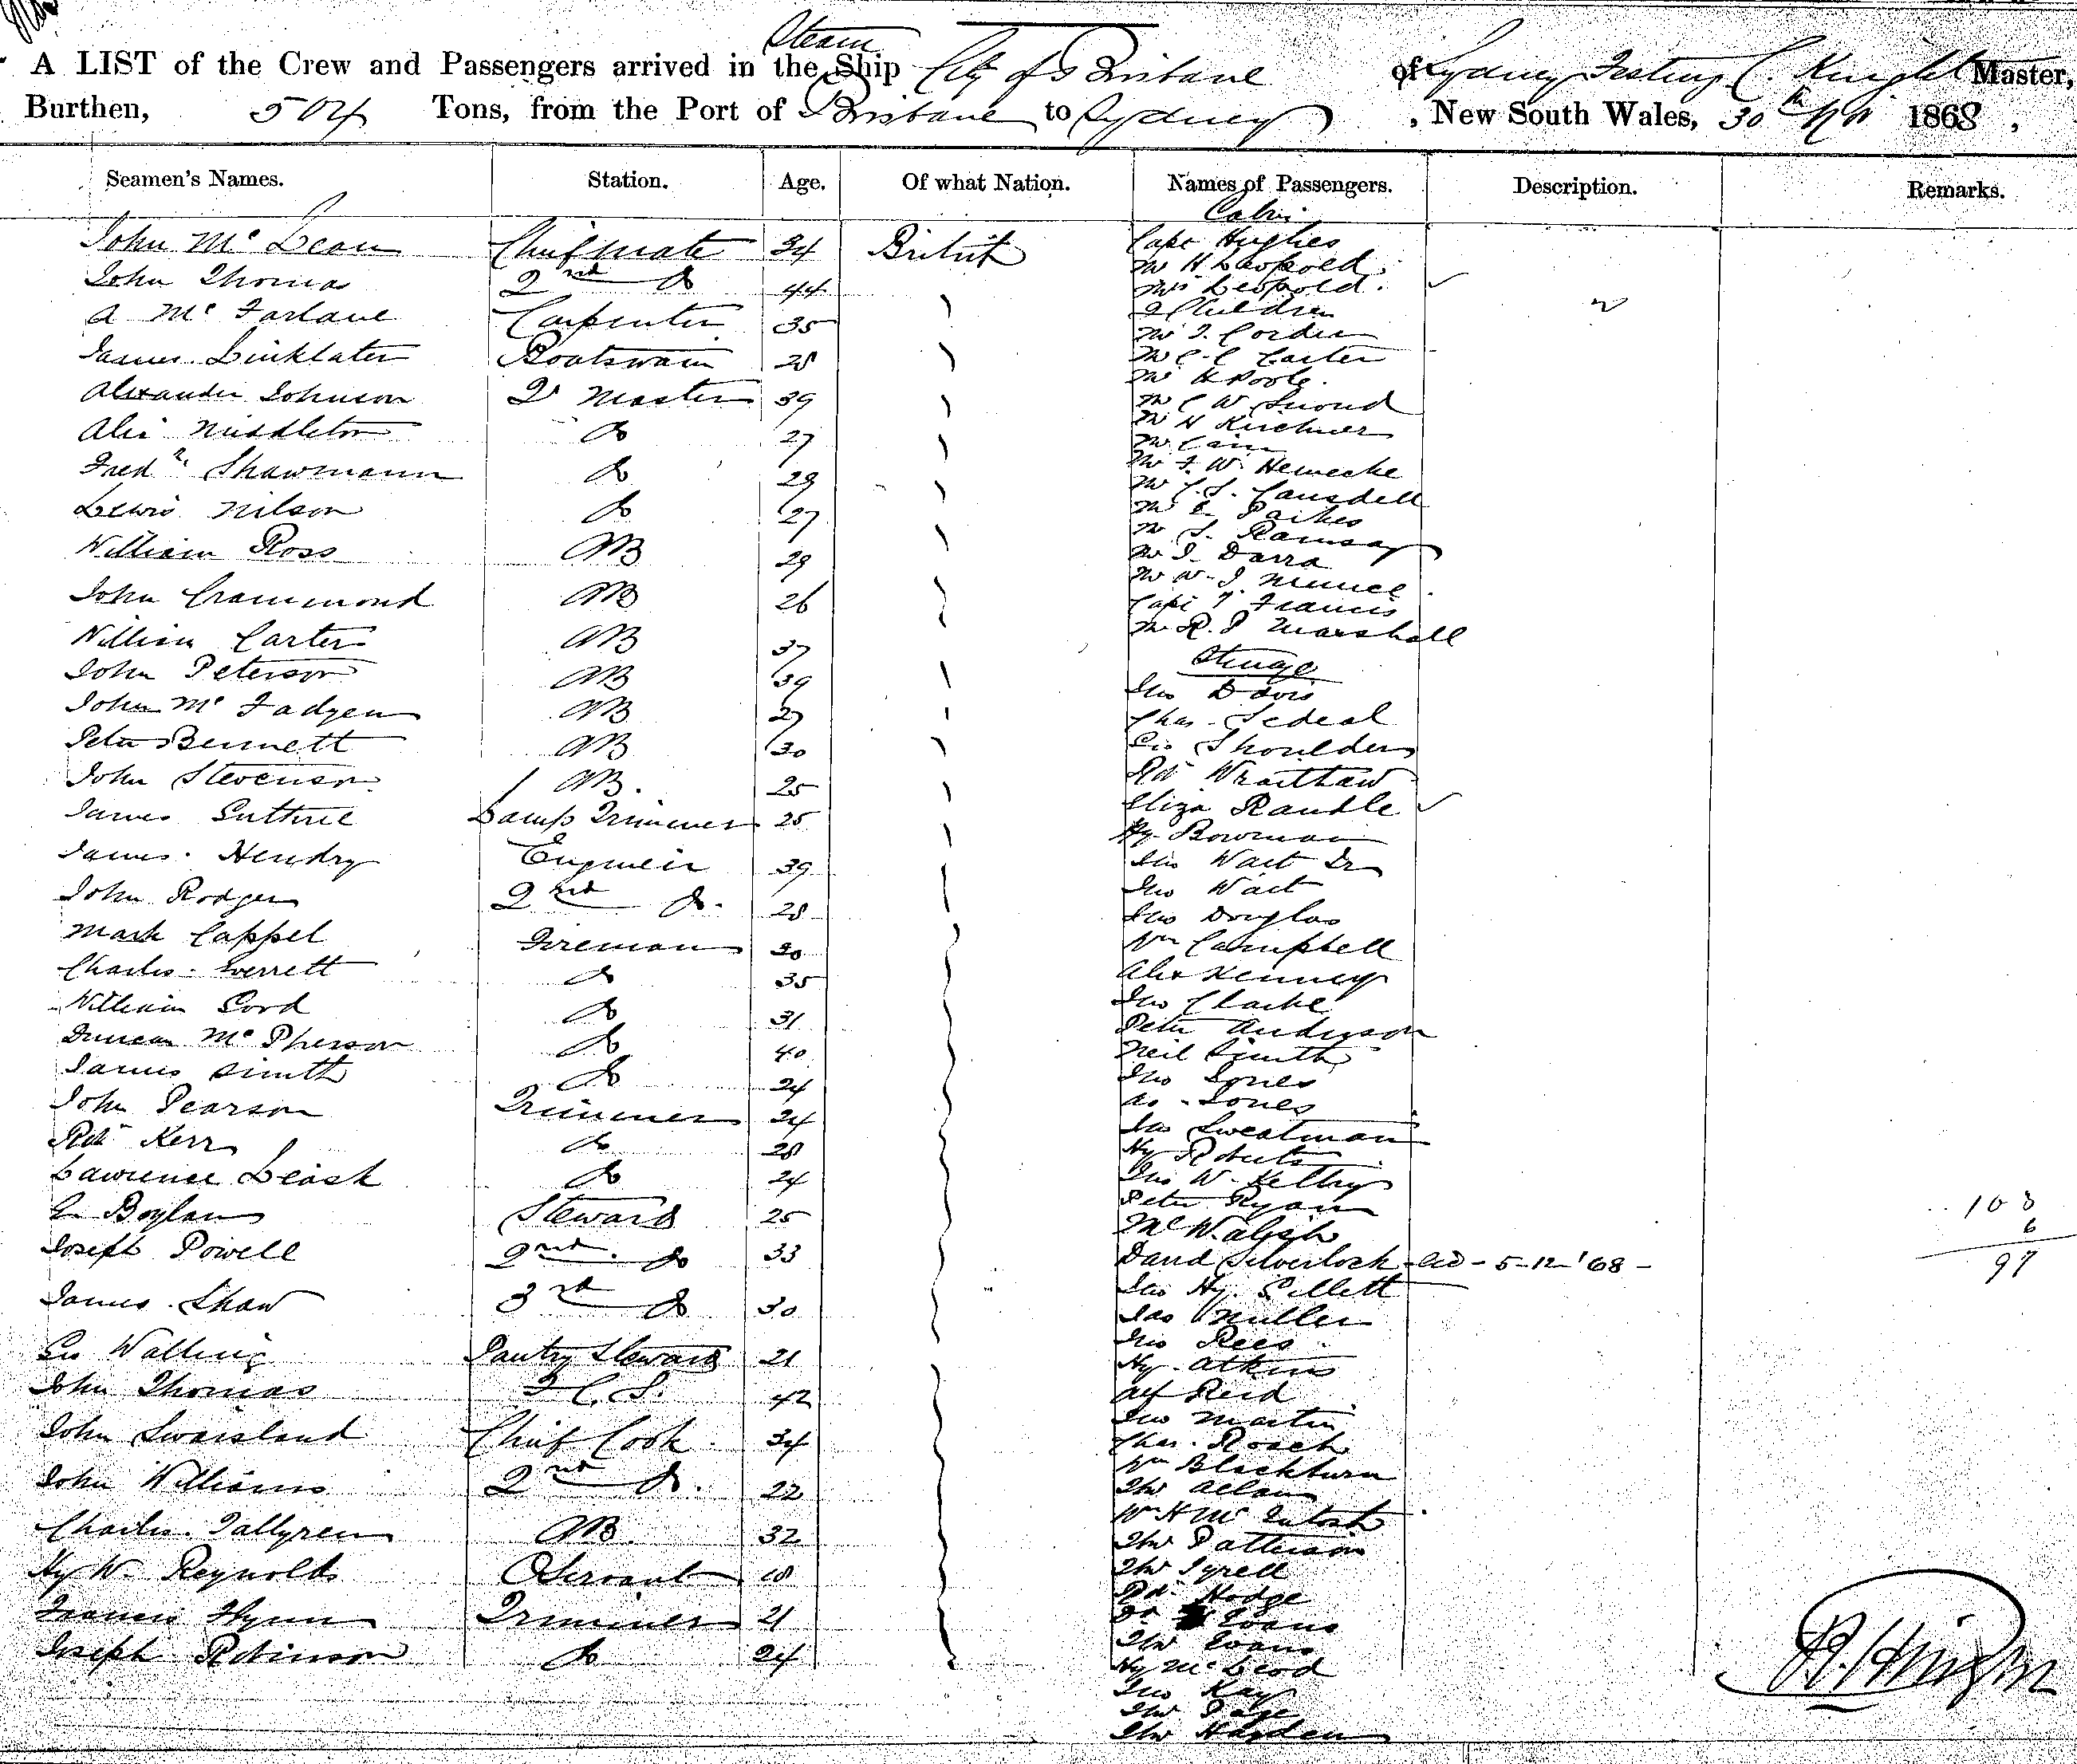 Steam
A LIST of the Crew and Passengers arrived in the Ship City of Brisbane of Sydney C. Knight Master,
Burthen, 504 Tons, from the Port of Brisbane to Sydney , New South Wales, 30th 1868 ,
Seamen's Names. Station. Age. Of what Nation. Names of Passengers. Description. Remarks.
Cabin
John Mc Lean Chief mate 34 British Capt Hughes
Mr H Leopold
John Thomas 2nd Do 44 Mrs Leopold.
A Mc Farlane Carpenter 35 2 Children
Mr J. Corder
James Linklater Boatswain 28 Mr C. C Carter
Mr H Poole.
Alexander Johnson Q Master 39 Mr C W
Mr H Kirchner
Alex Middleton Do 27 Mr Cain
Fred Shawmann Do 29 Mr F. W. Heinecke
Mr C. S. Cansdell
Lewis Nilson Do 27 Mr E. Parkes
Mr S. Ramsay
William Ross AB 29 Mr J. Darra
Mr W. J. Munce
John Crammond AB 26 Capt T. Francis
Mr R. P Marshall
William Carter AB 37
Steerage
John Peterson AB 39 Jno Davis
John Mc Fadyen AB 27 Chas. Sedeal
Peter Bennett AB 30 Geo Shoulders
John Stevenson AB. 25 Rd Wraithaw
James Guthrie Lamp Trimmer 25 Eliza Randle
Hy. Bowman
James. Hendry Engineer 39 Jno Wait Sr
John Rodger 2nd Do. 28 Jno Wait
Jno Douglas
Mark Cappel Fireman 30 Wm Campbell
Charles. Everrett Do 35 Alex Kenney
William Gord Do 31 Jno Clarke
Peter Anderson
Duncan Mc Pherson Do 40 Neil Smith
James Smith Do 24 Jno Jones
John Pearson Trimmer 24 Do. Jones
Jas Sweatman
Robt Kerr Do 28 Hy Roberts
Lawrence Leask Do 24 Jno W. Kelley
Peter Ryan
E. Boylan Steward 25 Mc Walsh 103
6
Joseph Powell 2nd. Do 33 David Silverlock - 5-12-'68 - 97
Jno Hy. Gillett
James. Shaw 3rd Do 30 Jas Muller
Jno Rees
Geo Walling Pantry Steward 21 Hy. Atkins
John Thomas F. C. S. 42 Alf Reid
Jno Martin
John Swaisland Chief Cook. 34 Chas. Roach
Wm Blackburn
John Williams 2nd Do. 22 Thos Allan
Wm H Mc Intosh
Charles. Tallyren AB. 32 Thos Patterson
Thos Tyrell
Hy W. Reynolds Servant 18 Rd. Hodge
Francis Flynn Trimmer 21 Evans
Thos Evans
Joseph Robinson Do 24 Hy Mc Leod
Jno Kay
Thos Page
Thos Hayden